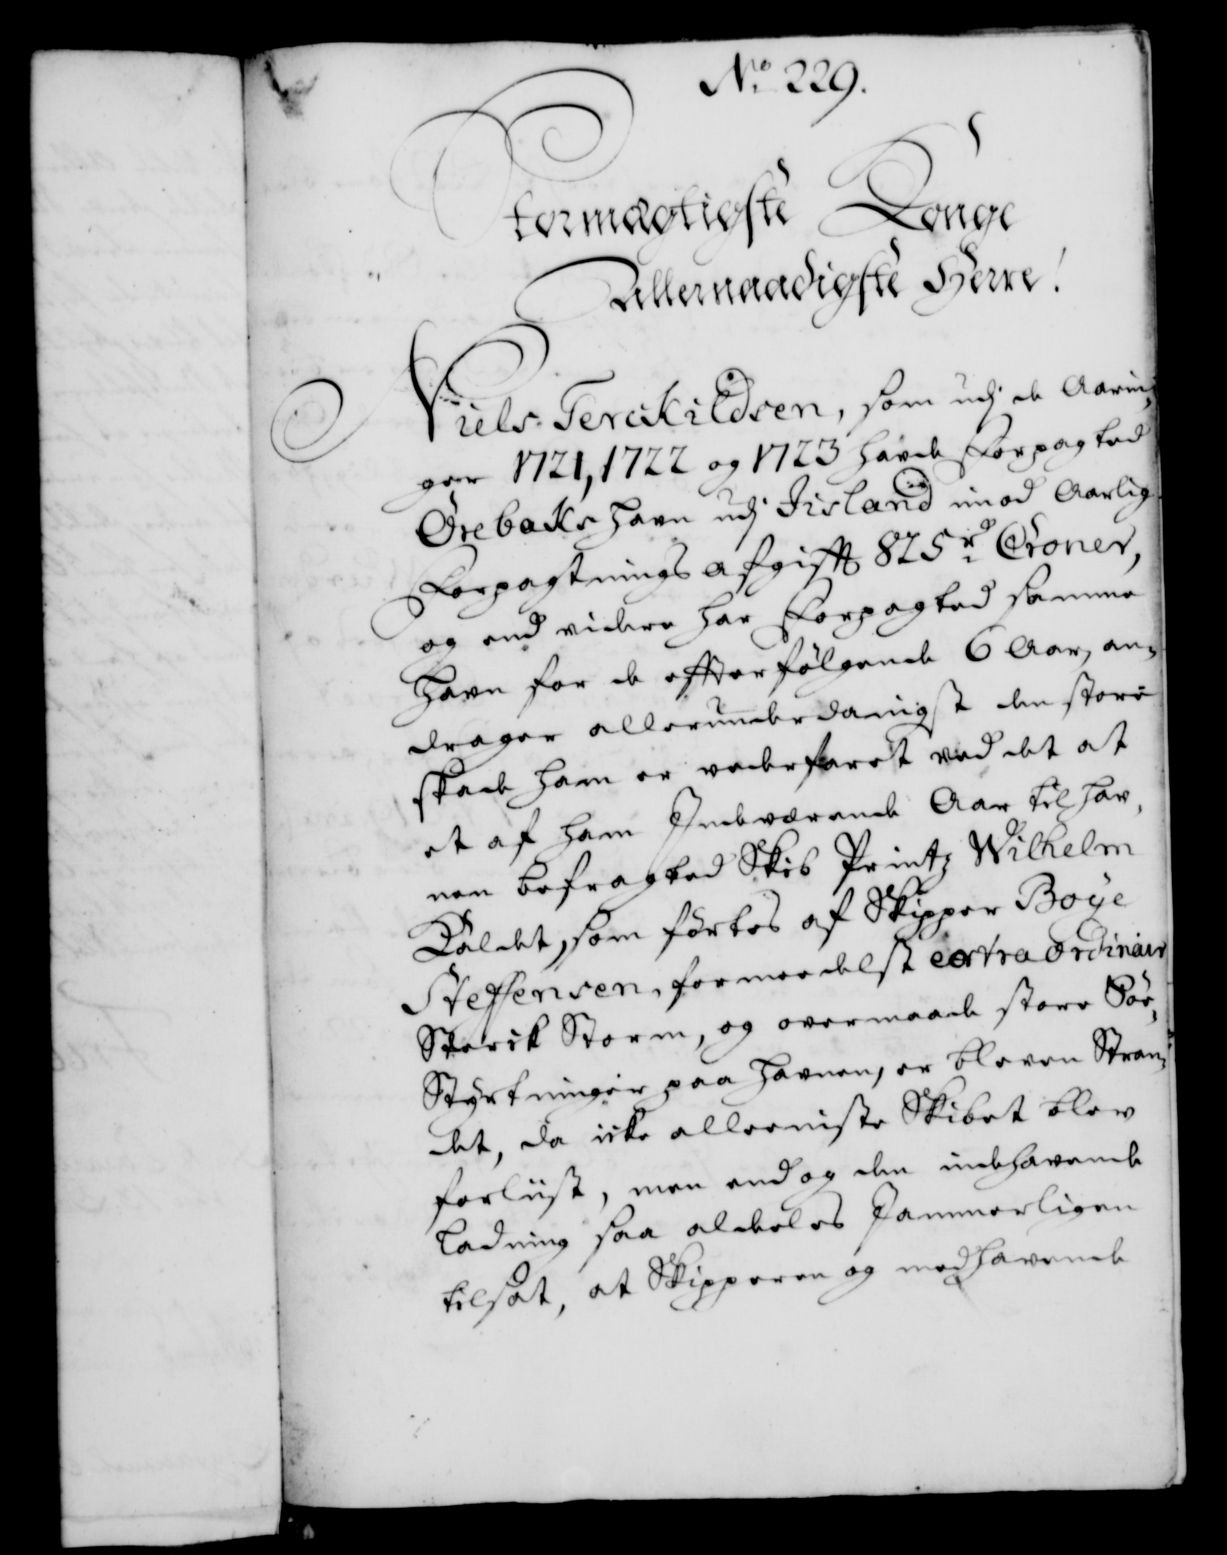 No. 229.
Stormægtigste Konge
Allernaadigste Herre!
Niels Terckildsen, som udj de Aarin,
ger 1721, 1722 og 1723 hafde Forpagted
Örebaks hafn udj Iisland imod Aarlig
Forpagtnings afgifft 825 rd Croner,
og end videre har Forpagted samme
hafn for de effterfölgende 6 Aar, an,
drager allerunderdanigst den store
skade ham er vederfaret ved det at
et af ham Indeværende Aar til haf,
nen befragted Skib Printz Wilhelm
Kaldet, som förtes af Skipper Boye
Steffensen, formedelst extraordinair
Sterck Storm, og overmaade store Söe,
Styrtninger paa hafnen, er bleven Stran,
det, da icke alleeniste Skibet blev
forliist, men end og den indehavende
Ladning saa aldeles Jammerligen
tilsat, at Skipperen og medhavende